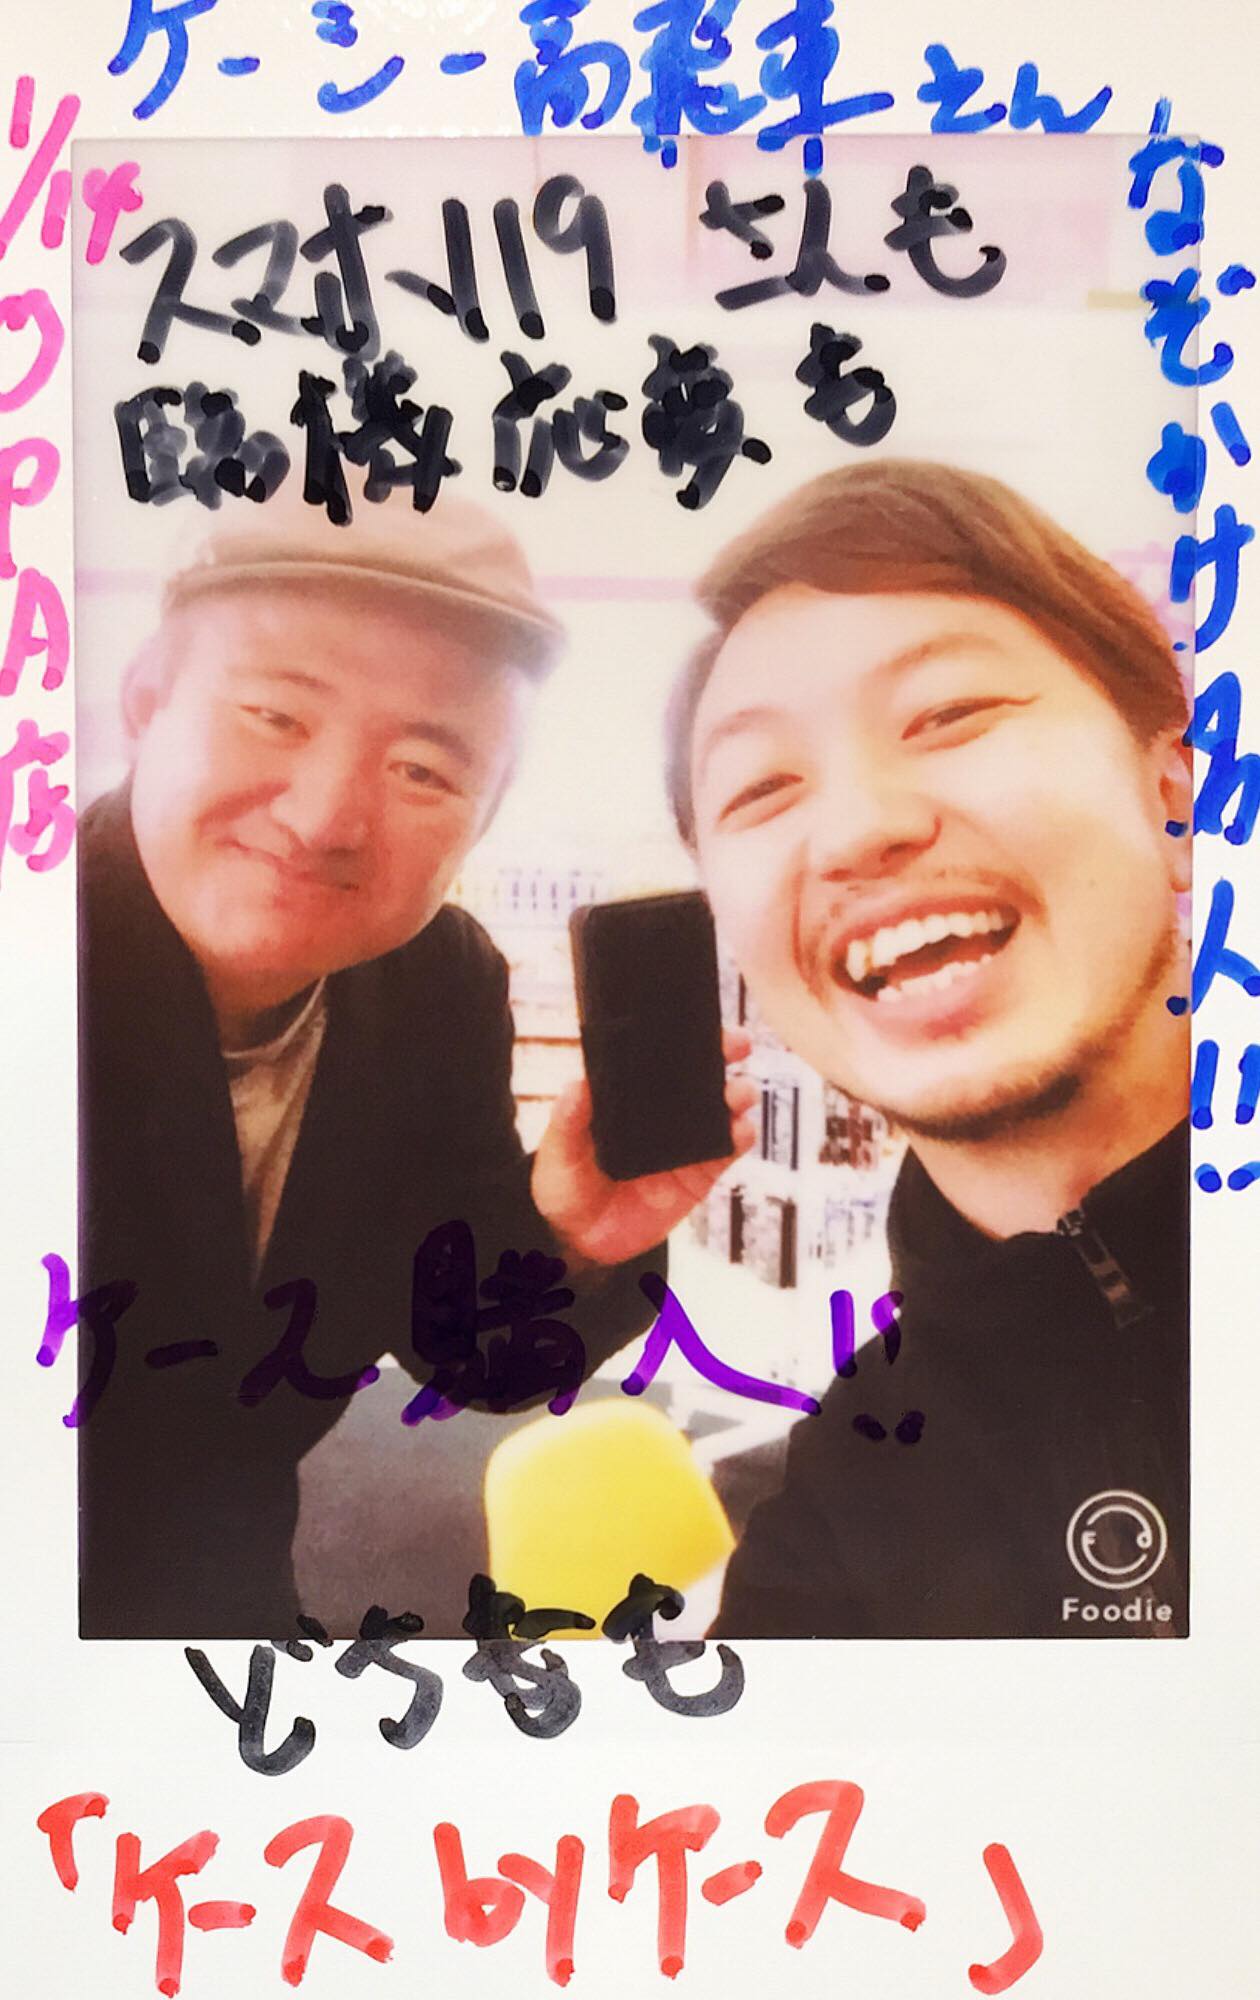 ケーシー高飛車さん
なぞかけ名人!!
1/14 OPA店
スマホ119さんも
臨機応変も
ケース購入!!
どちらも
「ケースbyケース」
Foodie